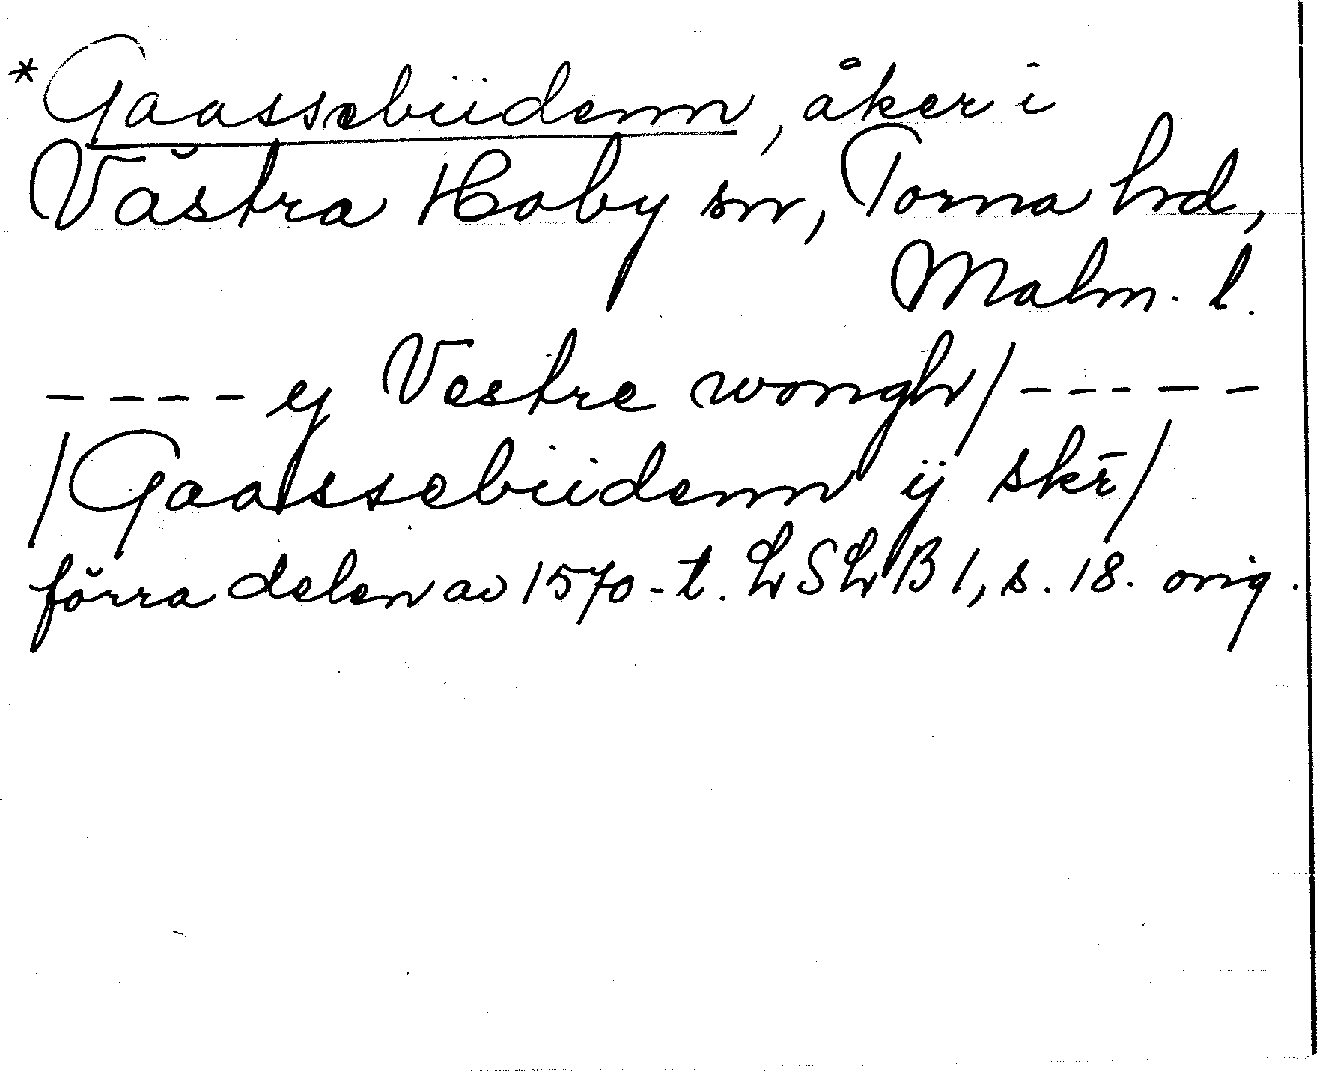 *Gaassebüdenn, åker i
Västra Hoby sn, Torna hrd,
Malm. l.
---- ÿ Vestre wongh/-----
/Gaassebüdenn ÿ skē/
förra delen av 1570-t. LSLB 1, s. 18. orig.